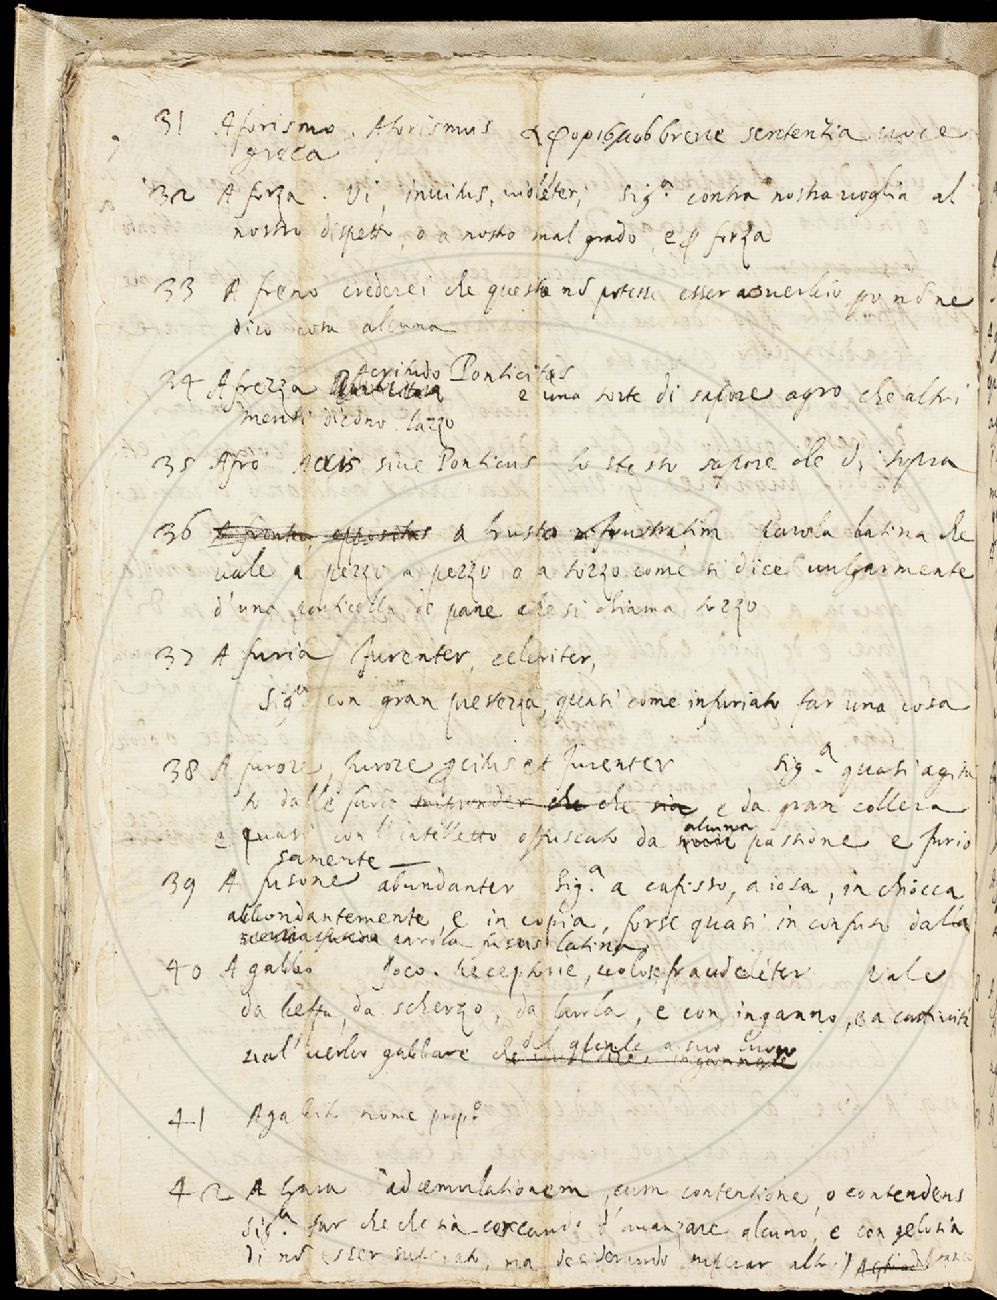 31 Aforismo. Aforismus αφορισμοσ breue sentenzia uoce
greca
32 A forza. Vi, inuitus, uioléter, sig.ª contra nostra uoglia al
nostro dispetto, o a nosto mal grado, e p forza
33 A freno crederei che questo nō potesse esser auuerbio poi nō ne
dico cosa alcuna
34 Afrezza Acritudo Ponticitas e una sorte di sapore agro che altri
menti dicono lazzo
35 Afro Acris siue Ponticus lo stesso sapore ch'è di supra
36 A fronte, oppositus a frusto a frustatim parola latina che
uale a pezzo a pezzo o a tozzo come si dice uulgarmente
d'una particella de pane che si chiama tozzo
37 A furia furenter, celeriter,
Sig.ª con gran prestezza, quasi come infuriato far una cosa
38 A furore, furore pcitus et furenter sig.ª quasi agita
to dalle furie che che sia e da gran collera
e quasi con l'intelletto offuscato da alcuna passione e furio
samente
39 A fusone abundanter sig.ª a cafisso, a iosa, in chiocca
abbondantemente e in copia, forse quasi in confuso dalla
parola fusus latina.
40 A gabbo Joco. deceptorie, uolose, fraudoléter Vale
da beffa, da scherzo, da burla, e con inganno,
dal uerbo gabbare che
41 Agabito nome prop.º
42 A gara ad emulationem, cum contentione, o contendens
Sig.ª far che che sia cercando d'auanzare alcuno, e con gelosia
di nō esser superato, ma desiderando superar altri